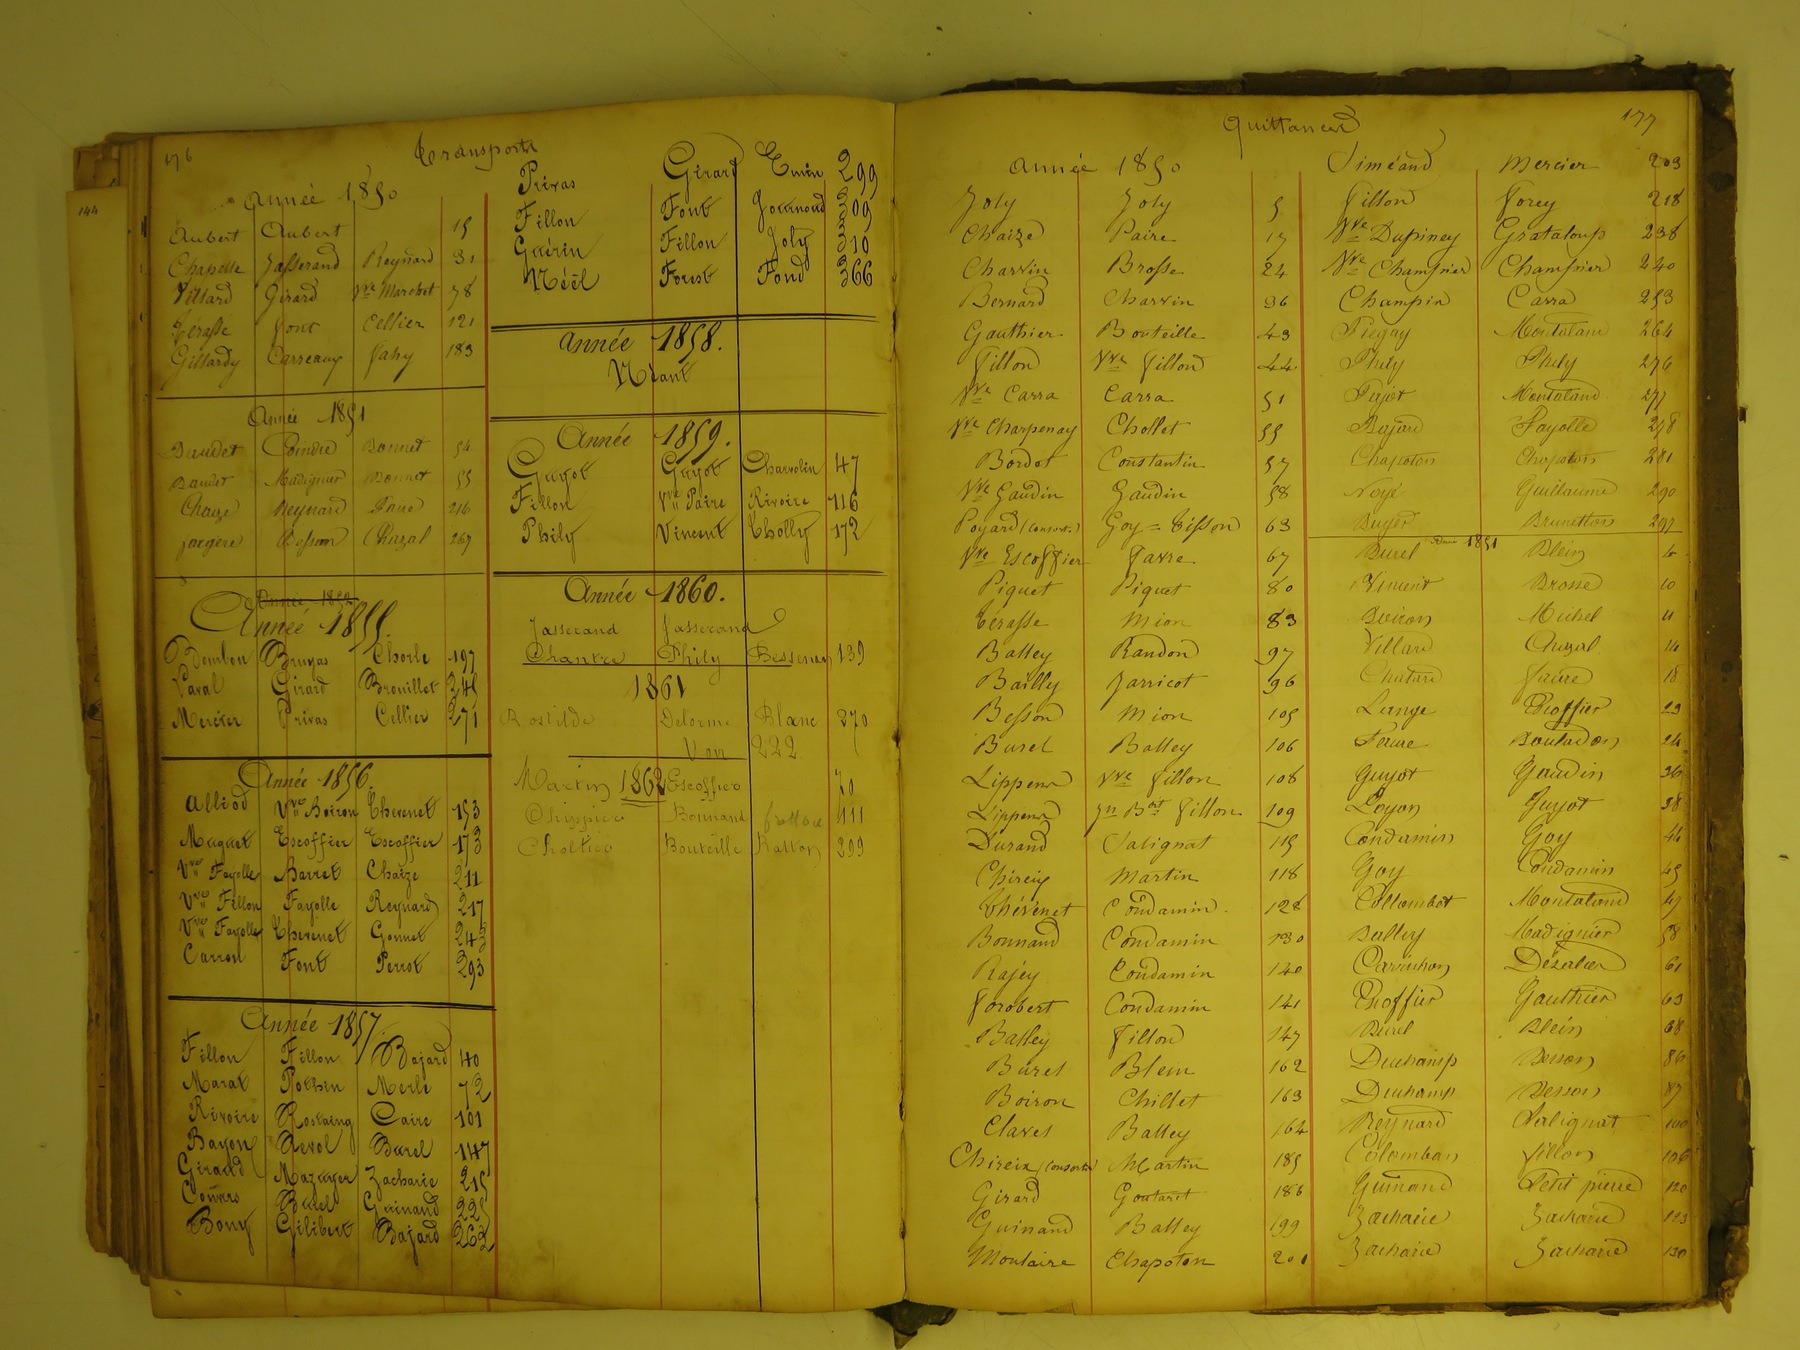 176
Transports
Année 1850
Aubert Aubert 15
Chapelle Jasserand Reynard 31
Villard Girard Vve Marchet 78
Térasse Font Cellier 121
Gillardy Carreaux Fahy 183
Année 1851
Baudet Poindre Bonnet 54
Baudet Madignier Bonnet 55
Chaize Reynard Paire 216
Besson Chazal 267
Année 1852
Année 1855.
Bruyas Chorle 197
Laval Girard Brouillet 245
Mercier Privas Cellier 271
Année 1856.
Alliod Vve Boiron Thevenet 153
Muguet Escoffier Escoffier 173
Vve Fayolle Barret Chaize 211
Vve Fillon Fayolle Reynard 217
Vve Fayolle Thevenet Gonnet 243
Carron Font Perrot 293
Année 1857.
Fillon Fillon Bajard 40
Marat Pothin Merle 72
Rivoire Rostaing Caire 101
Bayon Revol Burel 147
Giraud Mazuyer Zacharie 215
Burel Guinand 225
Bony Gilibert Bajard 262
Privas Girard Emin 299
Fillon Font Journoud 309
Guérin Fillon Joly 310
Néel Forest Fond 366
Année 1858.
Néant
Année 1859.
Guyot Guyot Charvolin 47
Fillon Vve Paire Rivoire 116
Phily Vincent Cholly 172
Année 1860.
Jasserand Jasserand
Chantre Phily Bessenay 139
1861
Rostilde Delorme Blanc 370
Voir 222
Martin 1862 Escoffier 70
Bonnand 111
Bouteille Ratton 299
177
Quittances
Année 1850
Joly Joly 5
Chaize Paire 17
Charvin Brosse 24
Bernard Charvin 36
Gauthier Bouteille 43
Fillon Vve Fillon 44
Vve Carra Carra 51
Vve Charpenay Chollet 55
Bordot Constantin 57
Vve Gaudin Gaudin 58
Poyard (consorts) Goy = Tisson 63
Vve Escoffier Favre 67
Piquet Piquet 80
Térasse Mion 83
Balley Randon 97
Bailly Jarricot 96
Besson Mion 105
Burel Balley 106
Lippens Vve Fillon 108
Lippens Jn Bst Fillon 109
Durand Salignat 115
Chireix Martin 118
Thévenet Condamin 128
Bonnand Condamin 130
Rajey Condamin 140
Forobert Condamin 141
Balley Fillon 147
Burel Blein 162
Boiron Chillet 163
Clavel Balley 164
Chireix (consorts) Martin 185
Girard Goutant 186
Guinand Balley 199
Moulaire Chapoton 201
Siméand Mercier 203
Fillon Forey 218
Vve Dupiney Grataloup 238
Vve Champier Champier 240
Champin Carra 253
Piegay Montaland 264
Phily Phily 276
Pujot Montaland 277
Bajard Fayolle 278
Chapoton Chapoton 281
Noyé Guillaume 290
Buyer Brunetton 297
Année 1851
Burel Blein 4
Vincent Brosse 10
Boiron Michel 11
Villard Chazal 14
Chatard Faure 18
Lange Escoffier 23
Faure Boutadon 24
Guyot Gaudin 36
Loyon Guyot 38
Condamin Goy 44
Goy Condamin 45
Collombet Montaland 47
Balley Madignier 58
Carrichon Dézalier 61
Escoffier Gauthier 63
Burel Blein 68
Duchamp Besson 86
Duchamp Besson 87
Reynard Salignat 100
Colomban Fillon 106
Guinand Petit pierre 120
Zacharie Zacharie 123
Zacharie Zacharie 130
144